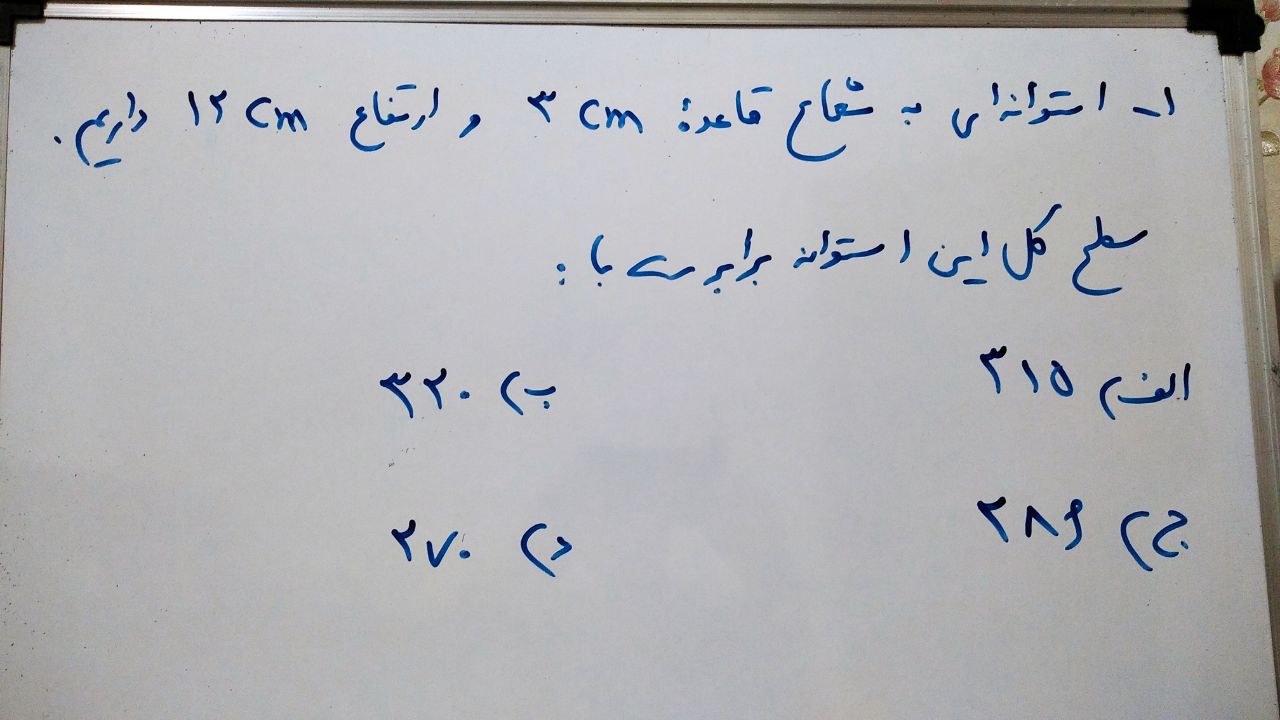 ۱- استوانه‌ای به شعاع قاعدهٔ ۳ cm و ارتفاع ۱۲ cm داریم.
سطح کل این استوانه برابر است با :
الف) ۳۱۵ ب) ۳۲۰
ج) ۲۸۶ د) ۲۷۰